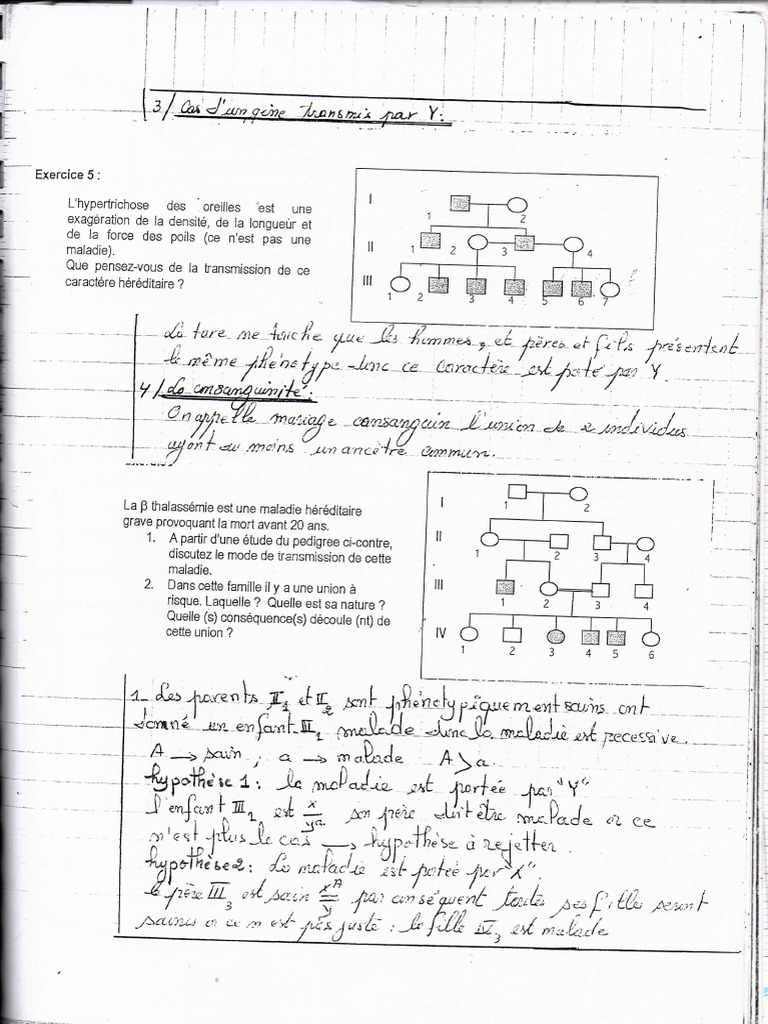 3/ Cas d'un gène transmis par Y:
Exercice 5 :
L'hypertrichose des oreilles est une
exagération de la densité, de la longueur et
de la force des poils (ce n'est pas une
maladie).
Que pensez-vous de la transmission de ce
caractère héréditaire ?
I
1
2
II
1
2
3
4
III
1
2
3
4
5
6
7
La tare ne touche que les hommes, et pères et fils présentent
le même phénotype donc ce caractère est poté par Y.
4/ La consanguinité:
On appelle mariage consanguin l'union de 2 individus
ayant au moins un ancêtre commun.
La β thalassémie est une maladie héréditaire
grave provoquant la mort avant 20 ans.
1. A partir d'une étude du pedigree ci-contre,
discutez le mode de transmission de cette
maladie.
2. Dans cette famille il y a une union à
risque. Laquelle ? Quelle est sa nature ?
Quelle (s) conséquence(s) découle (nt) de
cette union ?
I
1
2
II
1
2
3
4
III
1
2
3
4
IV
1
2
3
4
5
6
1- Les parents II1 et II2 sont phénotypiquement sains ont
donné un enfant III1 malade donc la maladie est recessive.
A → sain ; a → malade A > a.
hypothèse 1 : la maladie est portée par "Y"
l'enfant III2 est X/Ya son père doit être malade or ce
n'est plus le cas → hypothèse à rejetter.
hypothèse 2 : La maladie est potée par "X".
le père III3 est sain XA/Y par conséquent toutes ses filles seront
saines or ce n'est pas juste : la fille IV3 est malade